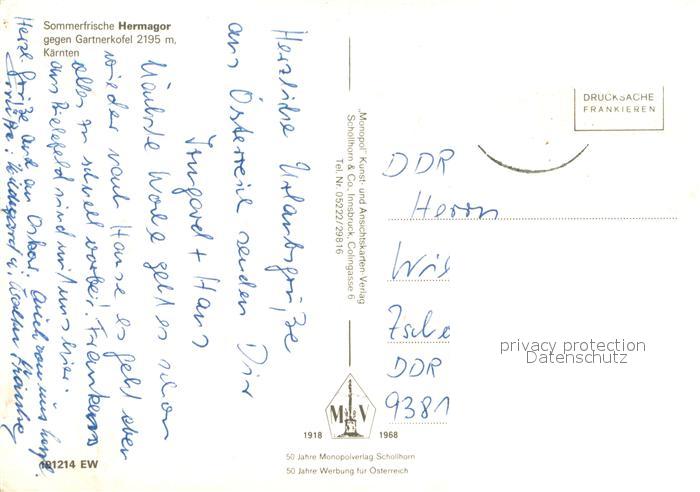 Sommerfrische Hermagor
gegen Gartnerkofel 2195 m,
Kärnten
Herzliche Urlaubsgrüße
aus Österreich senden Dir
Irmgard + Hans
Nächste Woche geht es schon
wieder nach Hause es geht eben
alles zu schnell vorbei. Frankens
aus Bielefeld sind mit uns hier.
Herzl. Grüße auch an Oskar. Auch von uns
Grüße Hildegard u.
101214 EW
„Monopol" Kunst- und Ansichtskarten-Verlag
Schöllhorn & Co., Innsbruck, Colingasse 6
Tel. Nr. 05222/29816
M V
1918 1968
50 Jahre Monopolverlag Schöllhorn
50 Jahre Werbung für Österreich
DRUCKSACHE
FRANKIEREN
DDR
Herrn
DDR
9381
privacy protection
Datenschutz